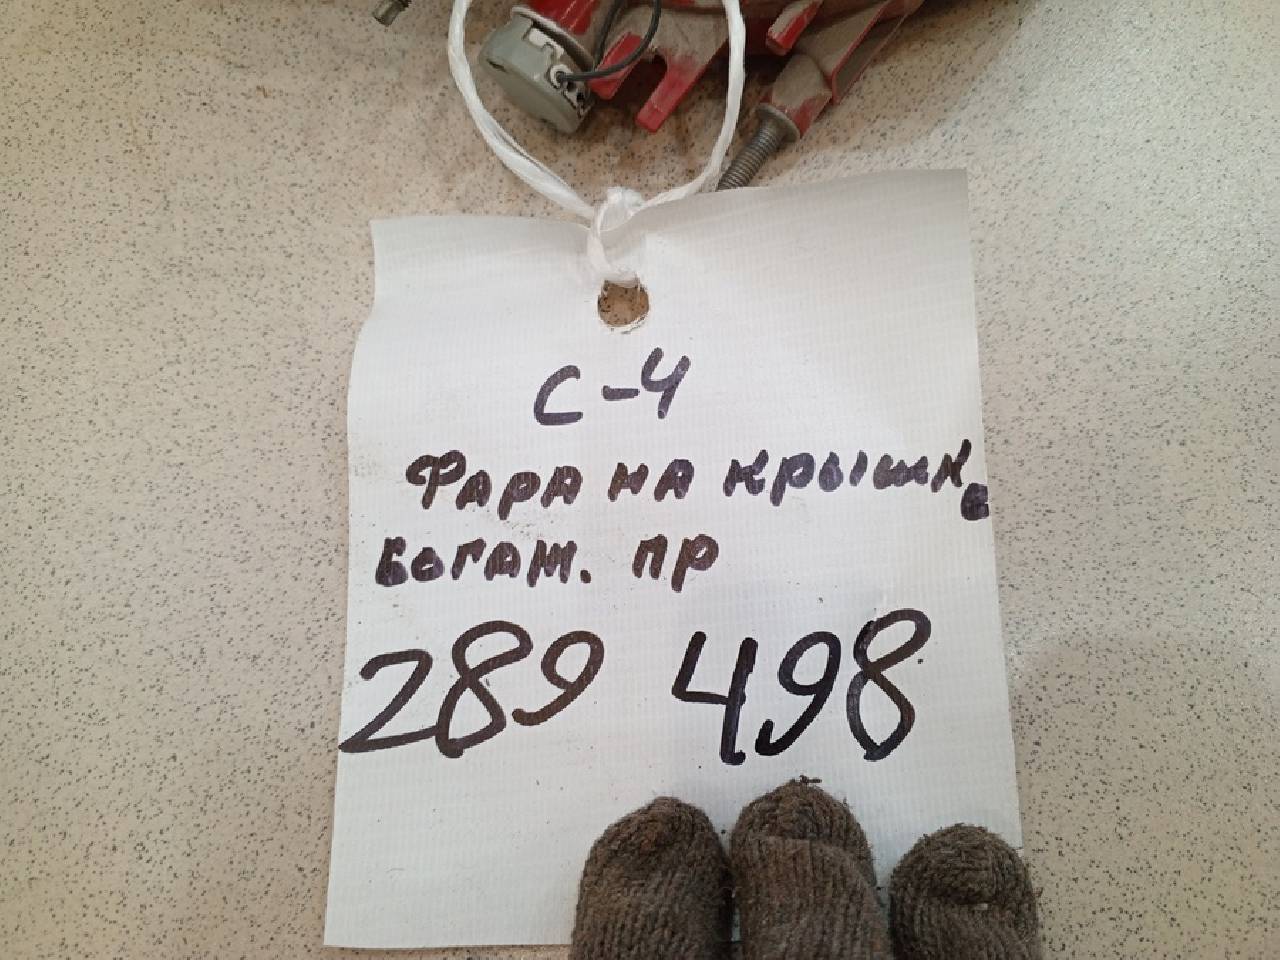 С-4
Фара на крышке
богаж. пр
289 498